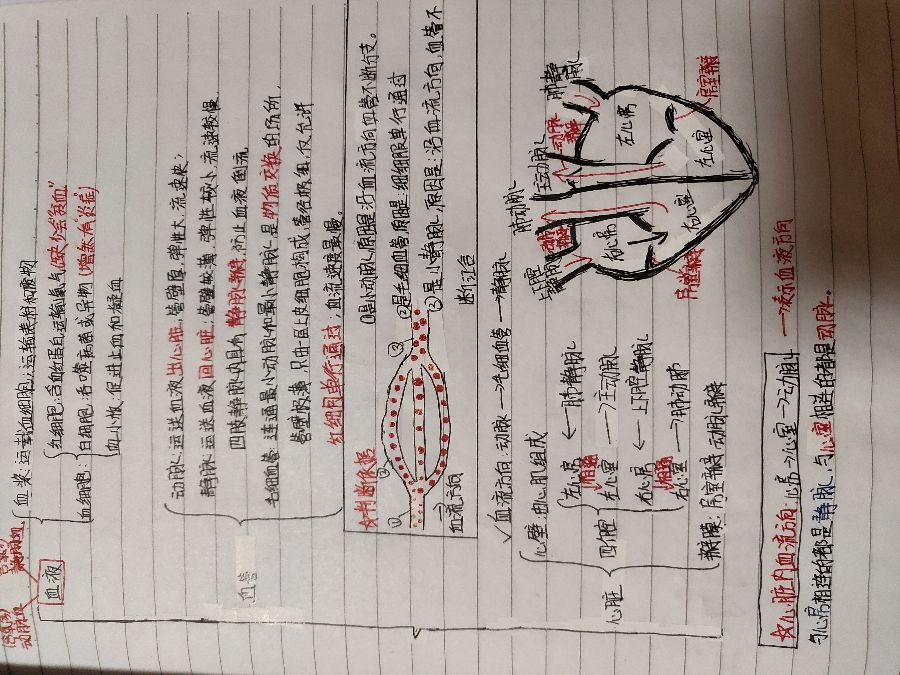 血液
血浆:运载血细胞,运输养料和废物
血细胞:
红细胞:含血红蛋白,运输氧气(缺少会"贫血")
白细胞:吞噬病菌或异物(增加:有"炎症)
血小板:促进止血和凝血
血管
动脉:运送血液出心脏;管壁厚,弹性大,流速快;
静脉:运送血液回心脏;管壁较薄,弹性较小,流速较慢,
四肢静脉内具有静脉瓣,防止血液倒流
毛细血管:连通最小动脉和最小静脉,是物质交换的场所,
管壁极薄,只由一层上皮细胞构成,管径极细,仅允许
红细胞单行通过,血流速度最慢。
判断依据
①是小动脉,原因是:沿血流方向血管不断分支。
②是毛细血管,原因是:红细胞单行通过
③是小静脉,原因是:沿血流方向,血管不
断汇合
① ② ③
血流方向
✓血流方向:动脉→毛细血管→静脉
心脏
心壁:由心肌组成
四个腔
左心房←肺静脉
相通
左心室→主动脉
右心房←上下腔静脉
相通
右心室→肺动脉
瓣膜:房室瓣、动脉瓣
肺动脉
主动脉
肺静脉
上下腔静脉
动脉瓣
左心房
右心房
左心室
右心室
房室瓣
房室瓣
心脏内血流方向:心房→心室→动脉
→表示血液方向
与心房相连的都是静脉,与心室相连的都是动脉。